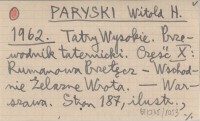 PARYSKI Witold H.
1962. Tatry Wysokie. Prze-
wodnik taternicki. Część X:
Rumanowa Przełęcz - Wschod-
nie Żelazne Wrota. - War-
szawa. Stron 187, ilustr.,